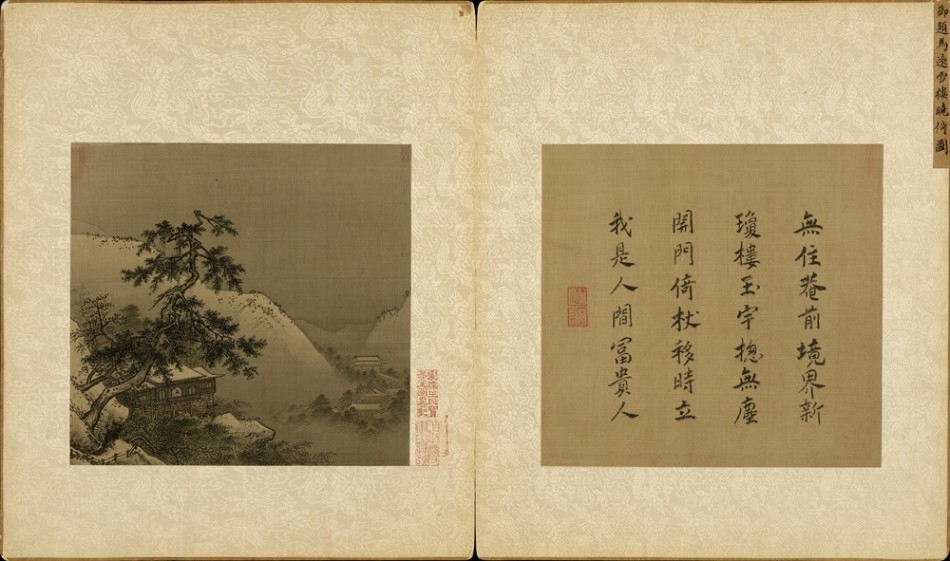 御題馬遠雪樓晚倚圖
無住菴前境界新
瓊樓玉宇揔無塵
開門倚杖移時立
我是人間冨貴人